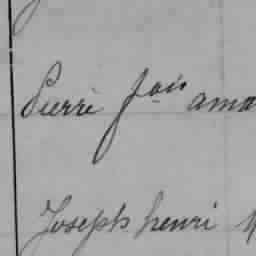 Pierre fois ama
Joseph henri